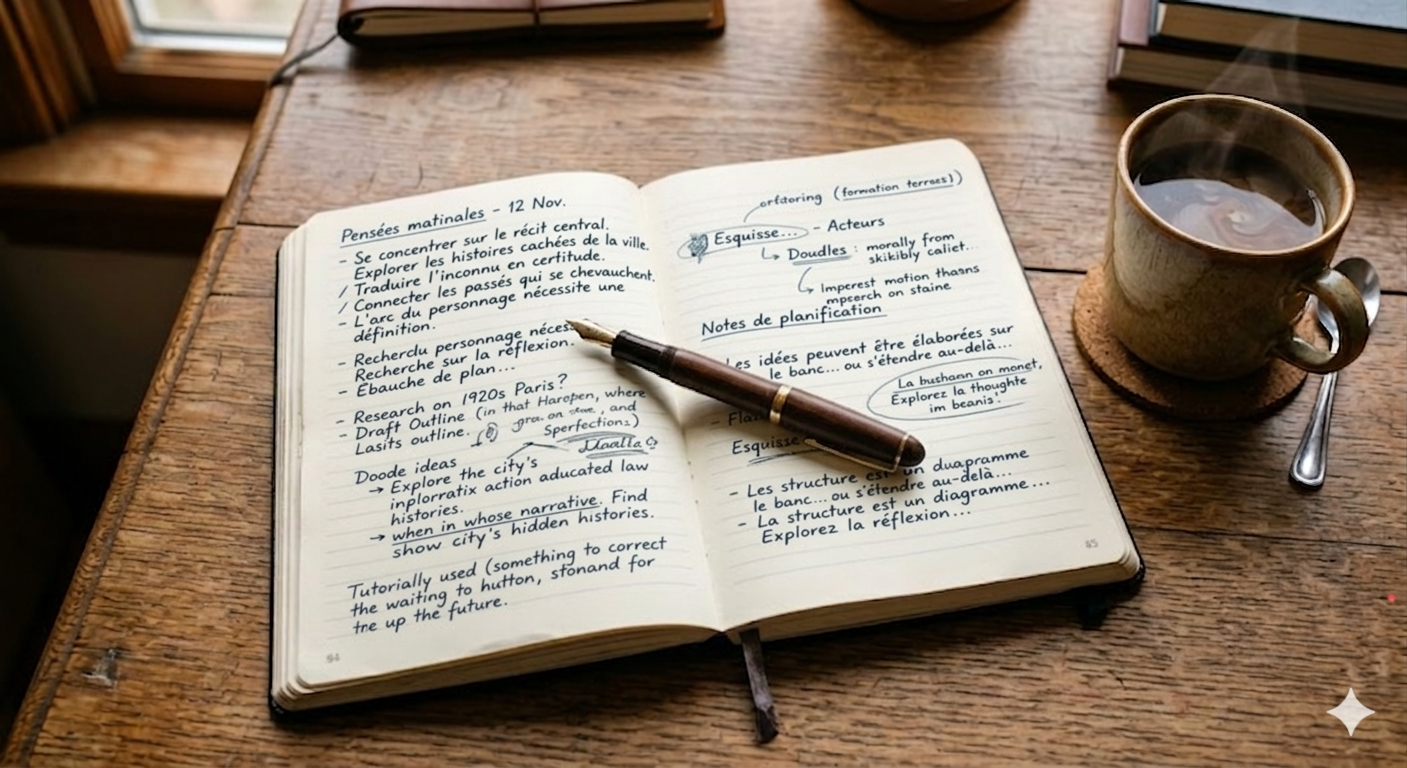 Pensées matinales - 12 Nov.
- Se concentrer sur le récit central.
Explorer les histoires cachées de la ville.
/ Traduire l'inconnu en certitude.
/ Connecter les passés qui se chevauchent.
- L'arc du personnage nécessite une
définition.
- Recherdu personnage nécess
Recherche sur la réflexion.
- Ébauche de plan...
- Research on 1920s Paris?
- Draft Outline (in that Haropen, where
Lasits outline. gra. on , and
Sperfections)
Doode ideas
→ Explore the city's
inplorratix action aducated law
histories.
→ when in whose narrative. Find
show city's hidden histories.
Tutorially used (something to correct
the waiting to hutton, stonand for
tne up the future.
84
orfdoring (formation terroes)
Esquisse... - Acteurs
↳ Doudles : morally from
skikibly caliet...
↳ Imperest motion thasns
mpcerch on staine
Notes de planification
Les idées peuvent être élaborées sur
le banc... ou s'étendre au-delà...
La bushann on monet,
Explorez la thoughte
im beanis.'
- Flan
Esquisse
- Les structure est un duapramme
le banc... ou s'étendre au-delà...
- La structure est un diagramme...
Explorez la réflexion...
85